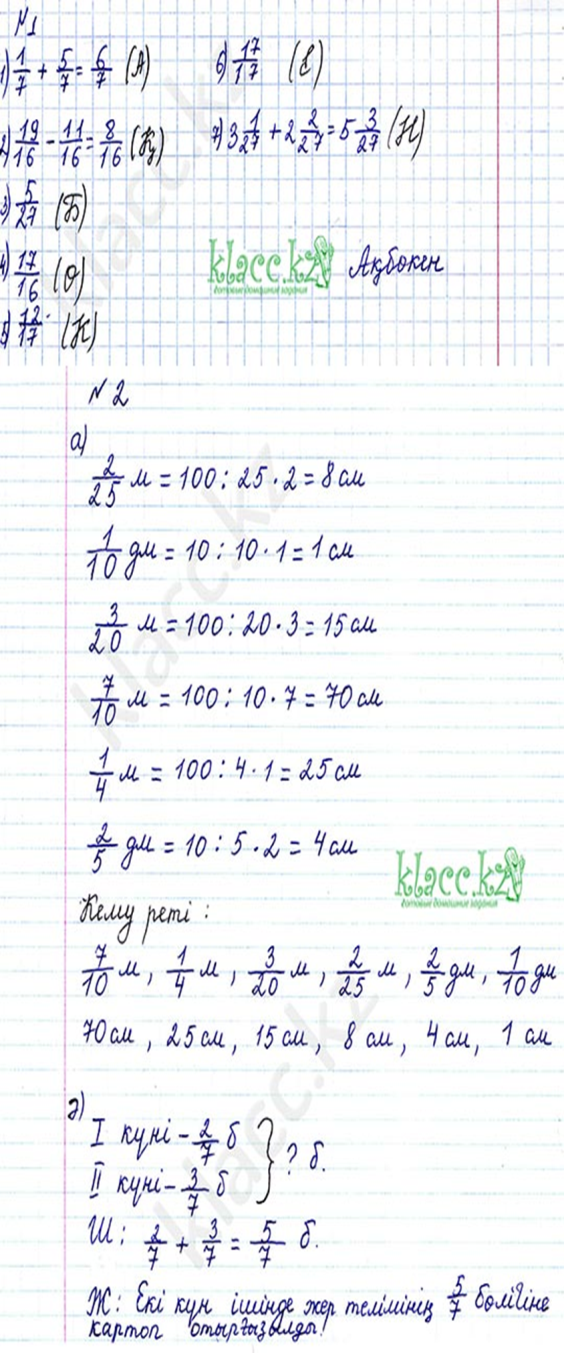 №1
1) 1/7 + 5/7 = 6/7 (А)
6) 17/17 (Е)
2) 19/16 - 11/16 = 8/16 (Қ)
7) 3 1/27 + 2 2/27 = 5 3/27 (Н)
3) 5/27 (Б)
4) 17/16 (О)
klacc.kz
готовые домашние задания
Ақбокен
5) 12/17 (К)
№ 2
а)
2/25 м = 100 : 25 · 2 = 8 см
1/10 дм = 10 : 10 · 1 = 1 см
3/20 м = 100 : 20 · 3 = 15 см
7/10 м = 100 : 10 · 7 = 70 см
1/4 м = 100 : 4 · 1 = 25 см
2/5 дм = 10 : 5 · 2 = 4 см
klacc.kz
готовые домашние задания
Кему реті :
7/10 м, 1/4 м, 3/20 м, 2/25 м, 2/5 дм, 1/10 дм
70 см, 25 см, 15 см, 8 см, 4 см, 1 см
ә)
I күні - 2/7 б
II күні - 3/7 б } ? б.
Ш: 2/7 + 3/7 = 5/7 б.
Ж: Екі күн ішінде жер телімінің 5/7 бөлігіне
картоп отырғызылды.